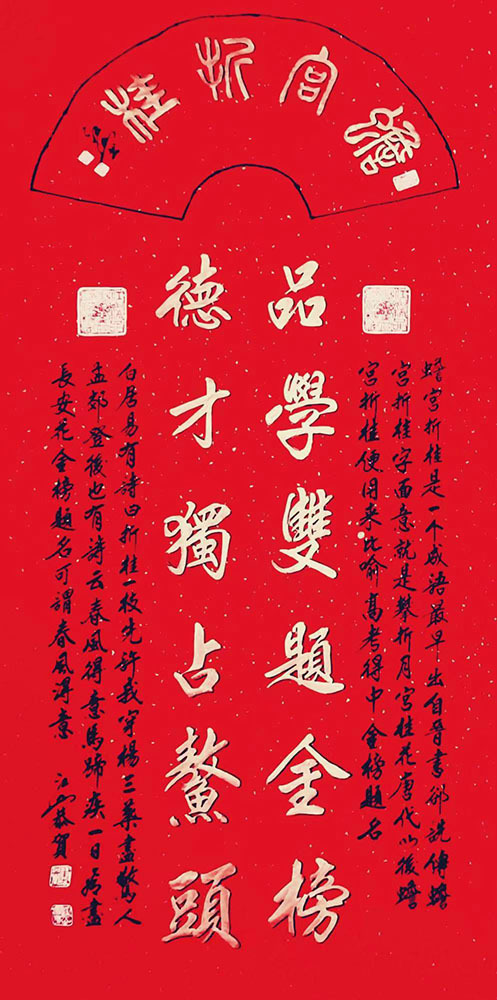 蟾宮折桂
品學雙題金榜
德才獨占鰲頭
蟾宮折桂是一个成語最早出自晉書郤詵傳蟾
宮折桂字面意就是攀折月宮桂花唐代以後蟾
宮折桂便用来比喻高考得中金榜題名
白居易有詩曰折桂一枝先許我穿楊三葉盡驚人
孟郊登後也有詩云春風得意馬蹄疾一日看盡
長安花金榜題名可謂春風得意 江山恭賀